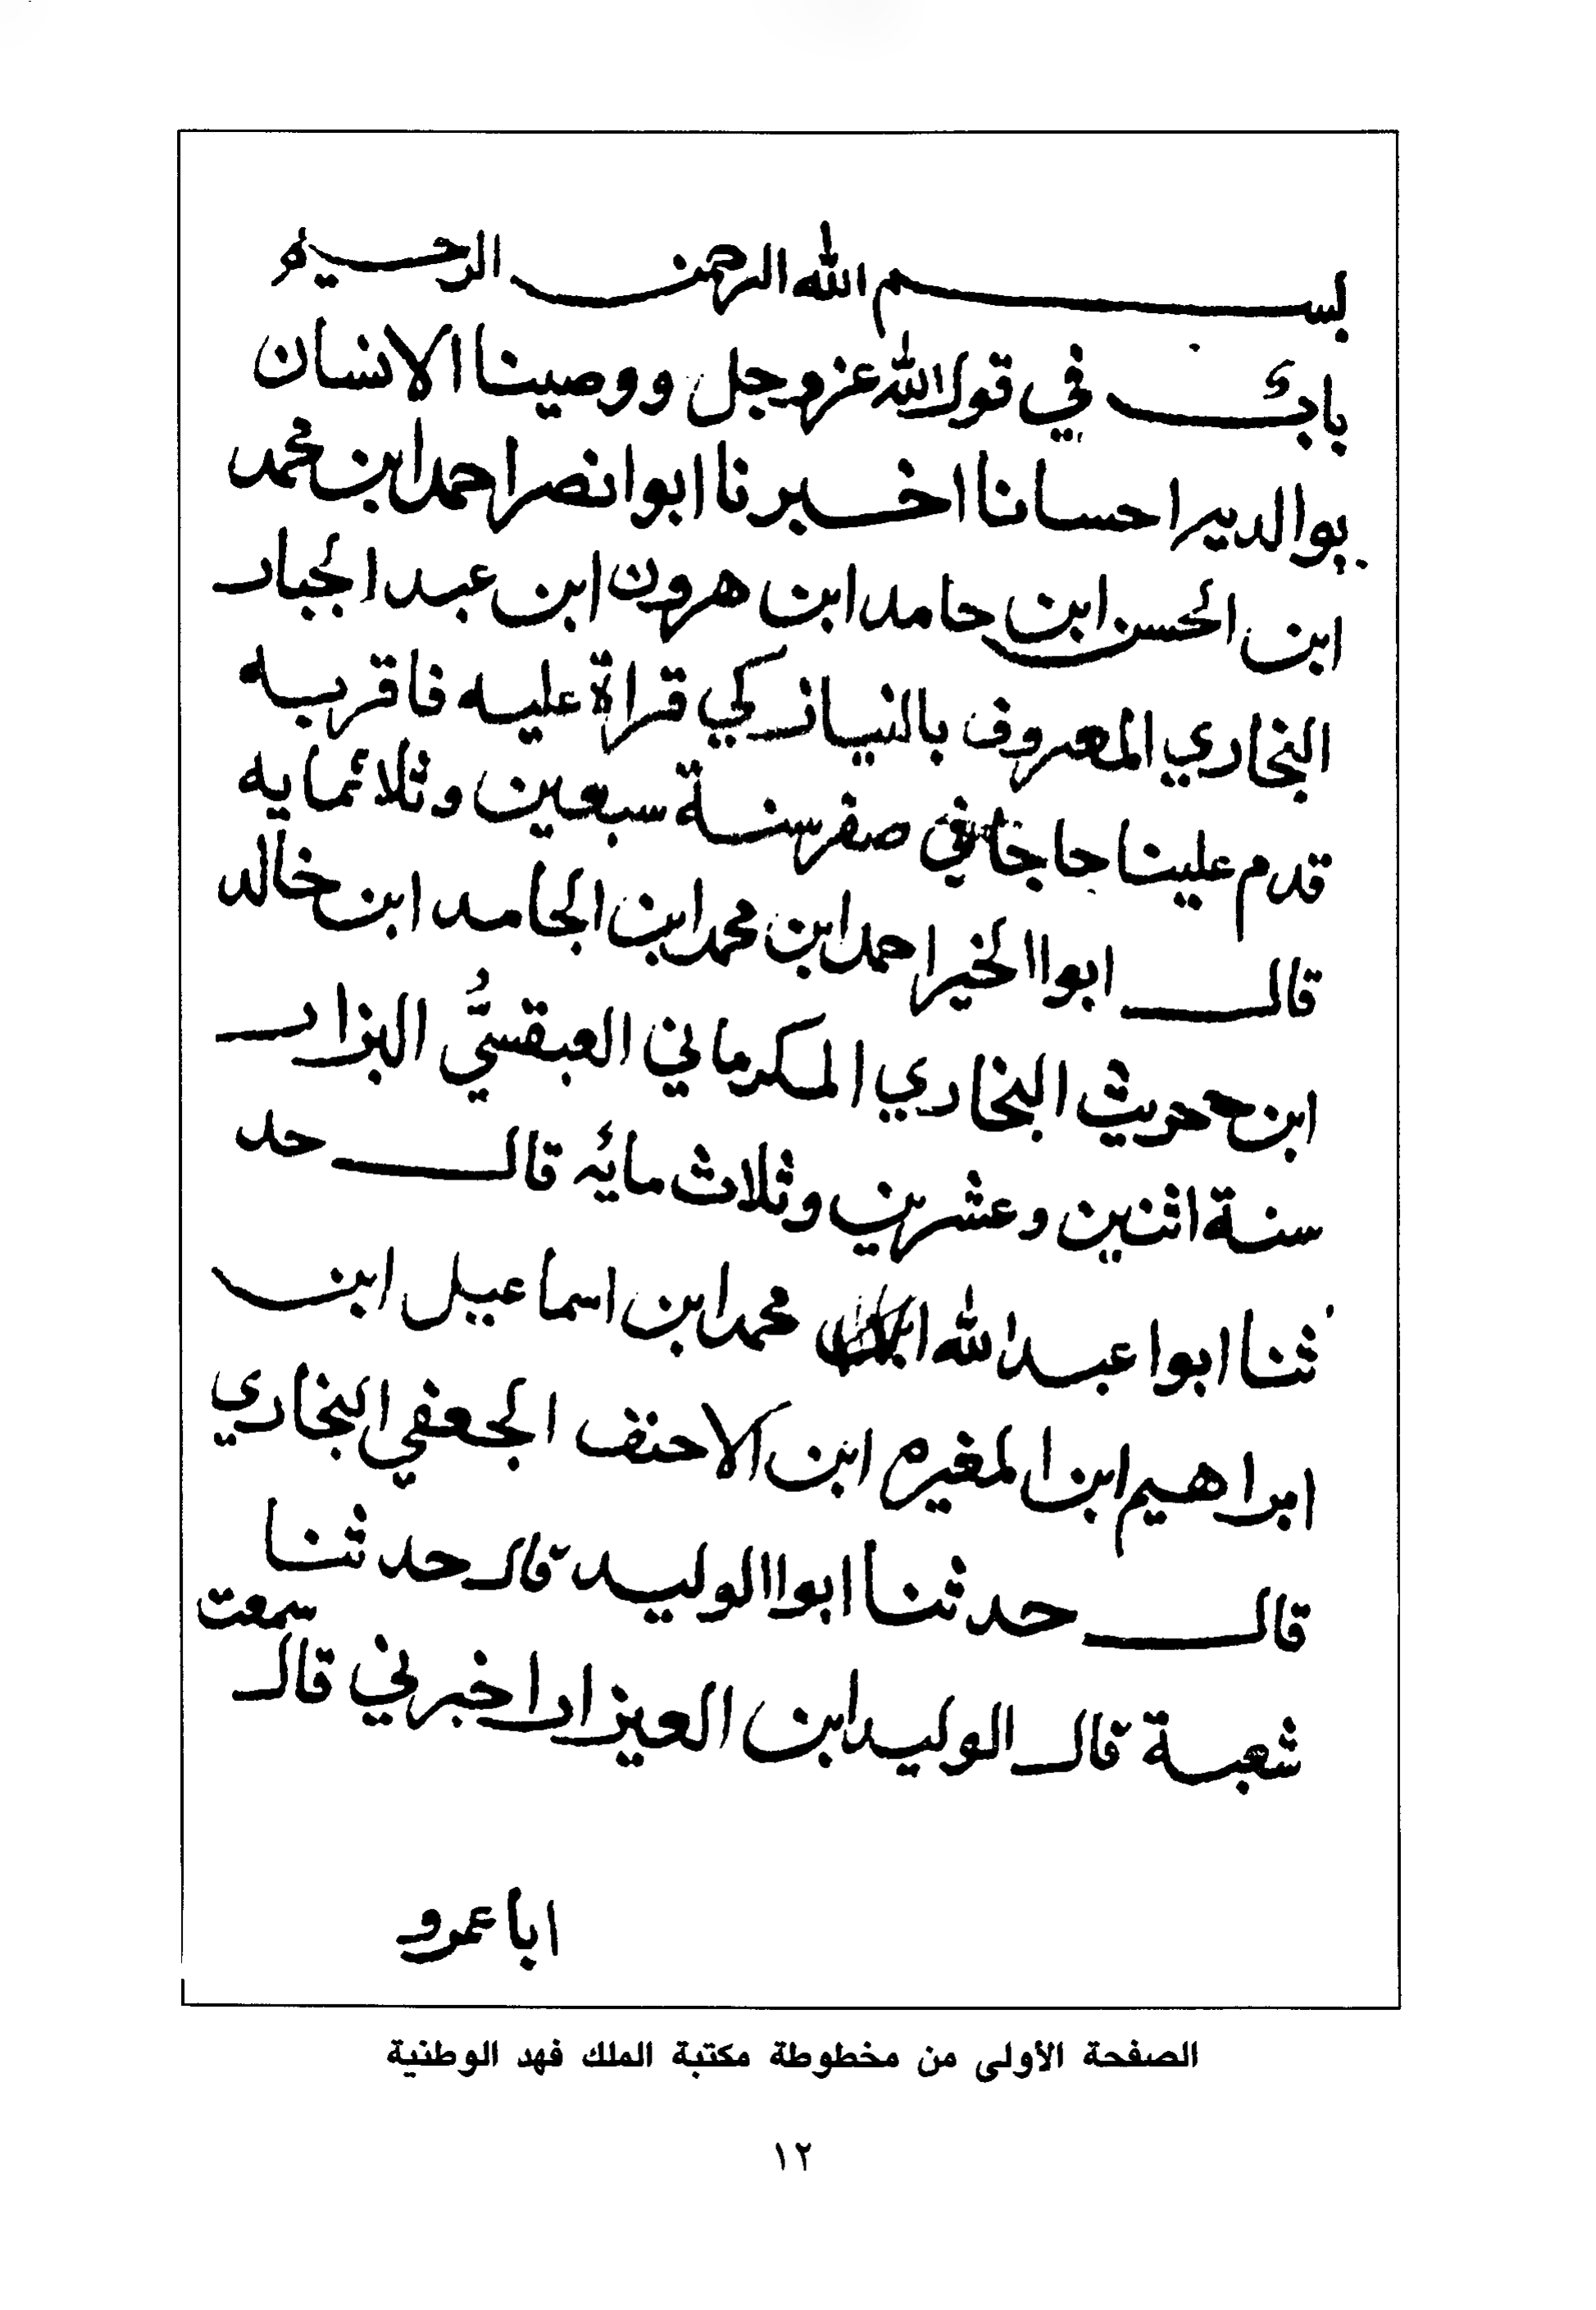 بسم الله الرحمن الرحيم
باب في قول الله عز وجل ووصينا الانسان
بوالديه احسانا اخبرنا ابوا نصر احمد ابن محمد
ابن الحسن ابن حامد ابن هرون ابن عبد الجبار
البخاري المعروف بالنيازكي قراة عليه فاقر به
قدم علينا حاجا في صفر سنة سبعين وثلاثمايه
قال ابوا الخير احمد ابن محمد ابن الجامد ابن خالد
ابن حريث البخاري الكرماني العبقسيُّ البزار
سنة اثنين وعشرين وثلاث مائه قال حد
ثنا ابوا عبد الله محمد ابن اسماعيل ابن
ابراهيم ابن المغيره ابن الاحنف الجعفي البخاري
قال حدثنا ابوا الوليد قال حدثنا
سمعت
شعبة قال الوليد ابن العيزار اخبرني قال
ابا عمرو
الصفحة الأولى من مخطوطة مكتبة الملك فهد الوطنية
١٢